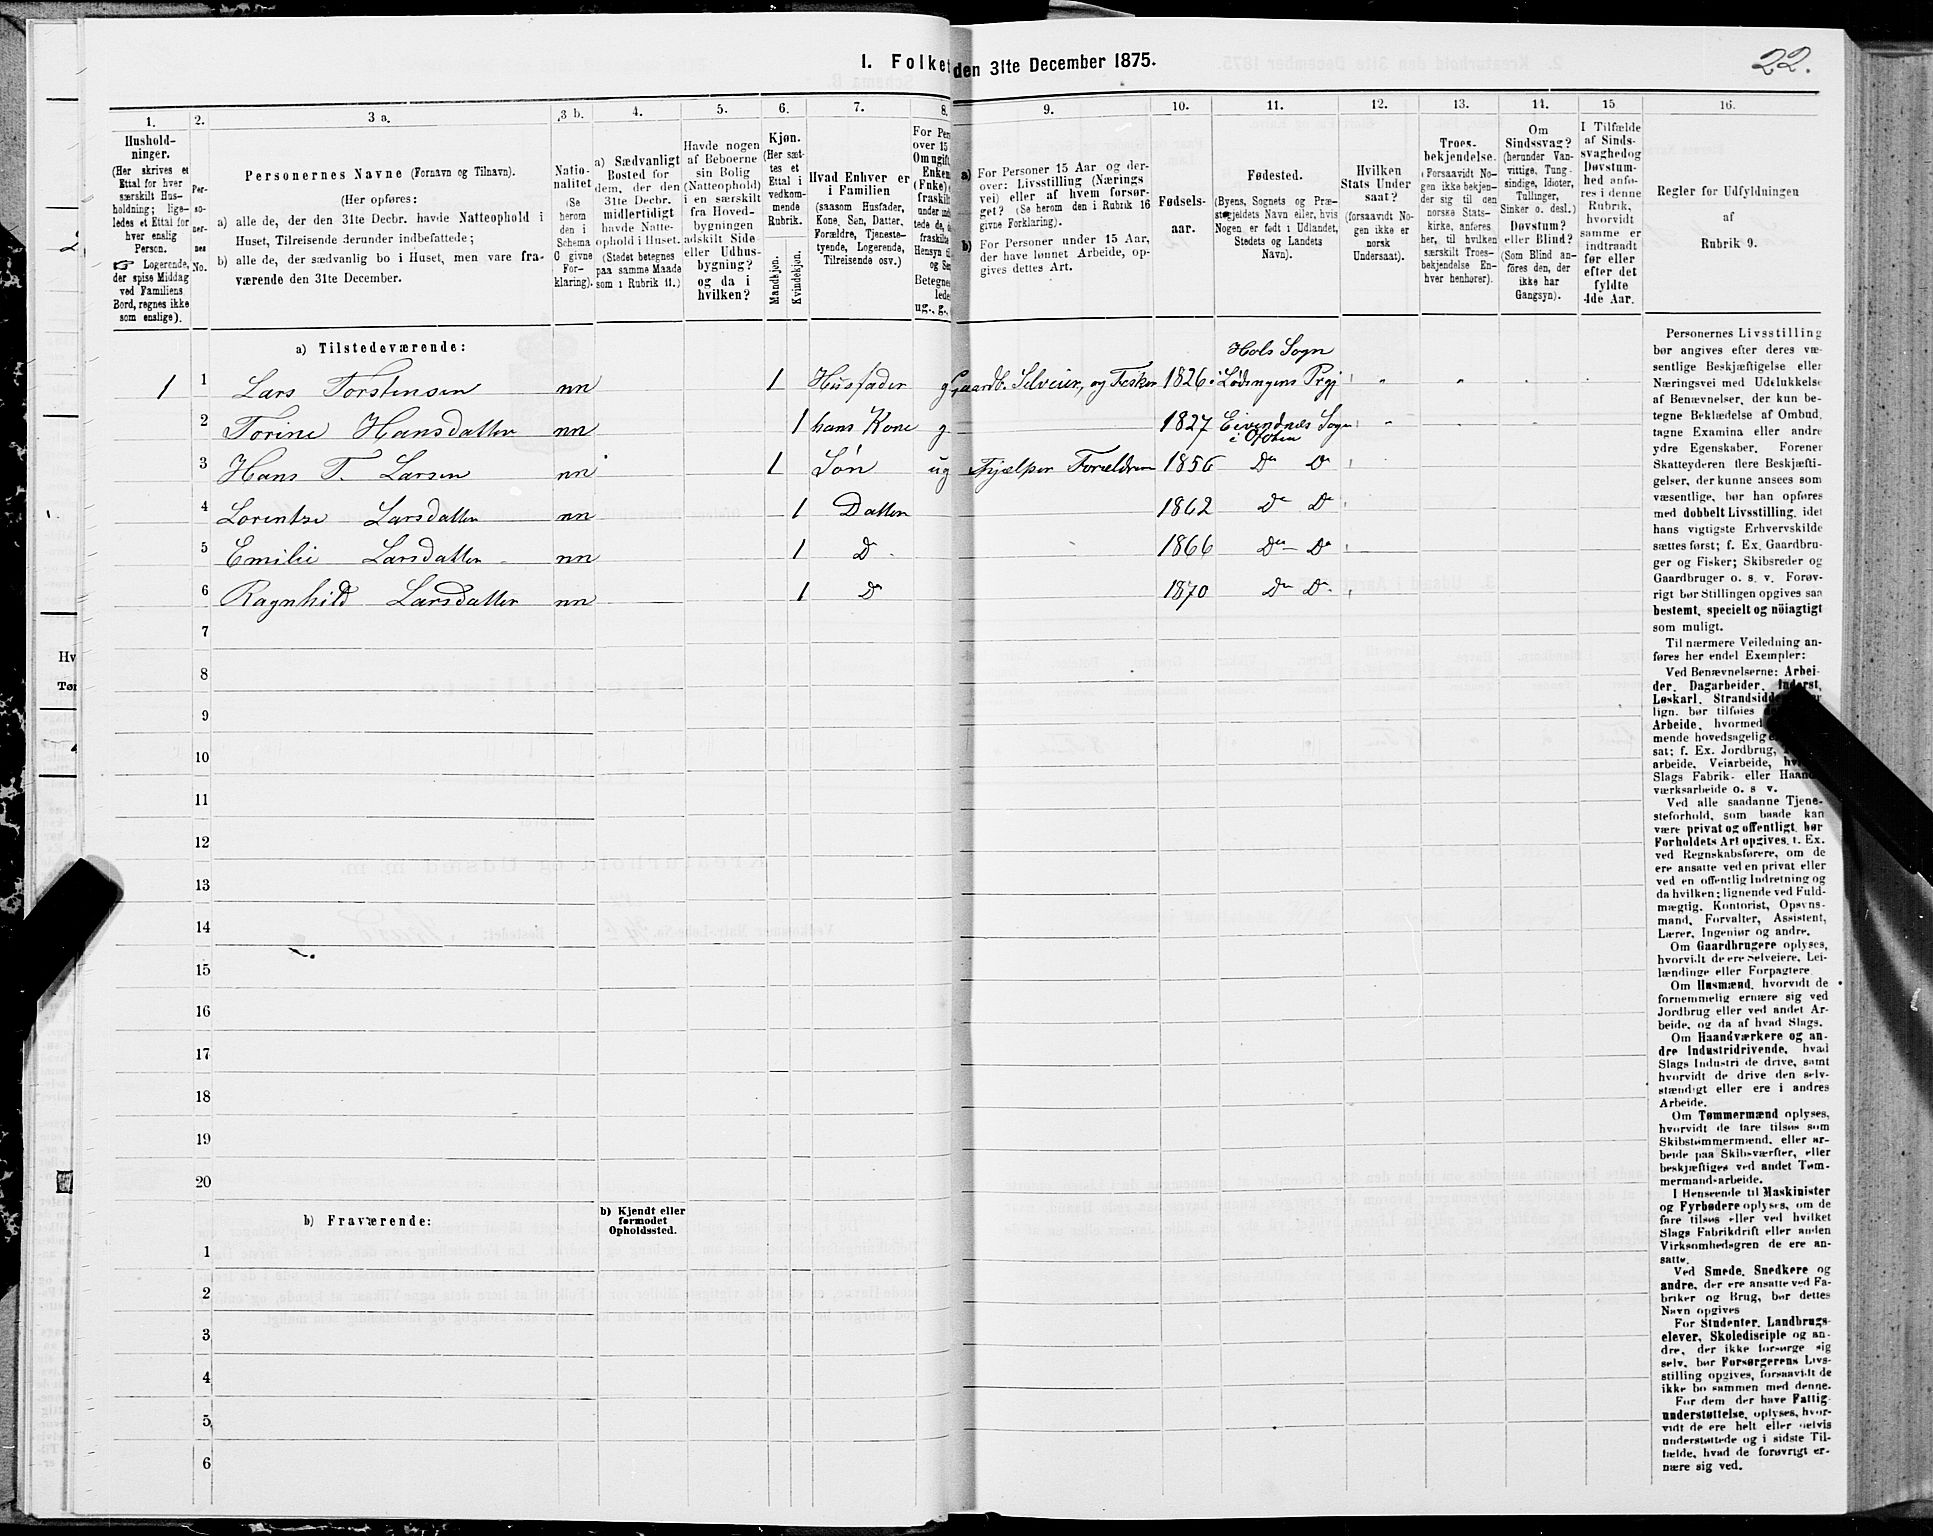 I. Folket
den 31te December 1875.
22.
1.
Hushold-
ninger.
(Her skrives et
Ettal for hver
særskilt Hus-
holdning; lige-
ledes et Ettal for
hver enslig
Person.
☞ Logerende,
der spise Middag
ved Familiens
Bord, regnes ikke
som enslige).
2.
Per-
so-
ner-
nes
No.
3 a.
Personernes Navne (Fornavn og Tilnavn).
(Her opføres:
a) alle de, der den 31te Decbr. havde Natteophold i
Huset, Tilreisende derunder indbefattede;
b) alle de, der sædvanlig bo i Huset, men vare fra-
værende den 31te December.
3 b.
Natio-
nalitet
(Se
herom
den i
Schema
C givne
For-
klaring).
4.
a) Sædvanligt
Bosted for
dem, der den
31te Decbr.
midlertidigt
havde Natte-
ophold i Huset.
(Stedet betegnes
paa samme Maade
som i Rubrik 11.)
5.
Havde nogen
af Beboerne
sin Bolig
(Natteophold)
i en særskilt
fra Hoved-
bygningen
adskilt Side-
eller Udhus-
bygning?
og da i
hvilken?
6.
Kjøn.
(Her sæt-
tes et
Ettal i
vedkom-
mende
Rubrik.
Mandkjøn.
Kvindekjøn.
7.
Hvad Enhver er
i Familien
(saasom Husfader,
Kone, Søn, Datter,
Forældre, Tjeneste-
tyende, Logerende,
Tilreisende osv.)
8.
For Per
over 15
Om ugift
Enken
(Fnke)
fraskilt
ug., g.,
9.
a) For Personer 15 Aar og der-
over: Livsstilling (Nærings
vei) eller af hvem forsør-
get? (Se herom den i Rubrik 16
givne Forklaring).
b) For Personer under 15 Aar,
der have lønnet Arbeide, op-
gives dettes Art.
10.
Fødsels-
aar.
11.
Fødested.
(Byens, Sognets og Præ-
stegjeldets Navn eller, hvis
Nogen er født i Udlandet,
Stedets og Landets
Navn).
12.
Hvilken
Stats Under
saat?
(forsaavidt No-
gen ikke er
norsk
Undersaat).
13.
Troes-
bekjendelse.
(Forsaavidt No-
gen ikke bekjen-
der sig til den
norske Stats-
kirke, anføres
her, til hvilken
særskilt Troes-
bekjendelse En-
hver henhører).
14.
Om
Sindssvag?
(herunder Van-
vittige, Tung-
sindige, Idioter,
Tullinger,
Sinker o. desl.)
Døvstum?
eller Blind?
(Som Blind an-
føres den, der
ikke har
Gangsyn).
15
I Tilfælde
af Sinds-
svaghed og
Døvstum-
hed anfø-
res i denne
Rubrik,
hvorvidt
samme er
indtraadt
før eller
efter det
fyldte
4de Aar.
16.
Regler for Udfyldningen
af
Rubrik 9.
a) Tilstedeværende:
Hols Sogn
1 1 Lars Torstensen nn 1 Husfader g Gaardb. Selveier, og Fisker 1826 i Lødingens Prgj
2 Torine Hansdatter nn 1 hans Kone g 1827 Eivindnæs Sogn
i Ofoten
3 Hans T. Larsen nn 1 Søn ug Hjælper Forældrene 1856 Do Do
4 Lorentze Larsdatter nn 1 Datter 1862 Do Do
5 Emilie Larsdatter nn 1 Do 1866 Do Do
6 Ragnhild Larsdatter nn 1 Do 1870 Do Do
7
8
9
10
11
12
13
14
15
16
17
18
19
20
b) Fraværende:
b) Kjendt eller
formodet
Opholdssted.
1
2
3
4
5
6
Personernes Livsstilling
bør angives efter deres væ-
sentlige Beskjæftigelse eller
Næringsvei med Udelukkelse
af Benævnelser, der kun be-
tegne Beklædelse af Ombud,
tagne Examina eller andre
ydre Egenskaber. Forener
Skatteyderen flere Beskjæfti-
gelser, der kunne ansees som
væsentlige, bør han opføres
med dobbelt Livsstilling, idet
hans vigtigste Erhvervskilde
sættes først; f. Ex. Gaardbru-
ger og Fisker; Skibsreder og
Gaardbruger o. s. v. Forøv-
rigt bør Stillingen opgives saa
bestemt, specielt og nöiagtigt
som muligt.
Til nærmere Veiledning an-
føres her endel Exempler:
Ved Benævnelserne: Arbei-
der, Dagarbeider, Inderst,
Løskarl, Strandsidde
lign. bør tilføies
Arbeide, hvormed
mende hovedsagelig
sat; f. Ex. Jordbrug,
arbeide, Veiarbeide,
Slags Fabrik- eller Haand-
værksarbeide o. s. v.
Ved alle saadanne Tjene-
steforhold, som baade kan
være privat og offentligt, bør
Forholdets Art opgives, f. Ex.
ved Regnskabsførere, om de
ere ansatte ved en privat eller
ved en offentlig Indretning og
da hvilken; lignende ved Fuld-
mægtig, Kontorist, Opsyns-
mand, Forvalter, Assistent,
Lærer, Ingeniør og andre.
Om Gaardbrugere oplyses,
hvorvidt de ere Selveiere, Lei-
lændinge eller Forpagtere.
Om Husmænd, hvorvidt de
fornemmelig ernære sig ved
Jordbrug eller ved andet Ar-
beide, og da af hvad Slags.
Om Haandværkere og an-
dre Industridrivende, hvad
Slags Industri de drive, samt
hvorvidt de drive den selv-
stændigt eller ere i andres
Arbeide.
Om Tømmermænd oplyses,
hvorvidt de fare tilsøs som
Skibstømmermænd, eller ar-
beide paa Skibsværfter, eller
beskjæftiges ved andet Tøm-
mermandsarbeide.
I Henseende til Maskinister
og Fyrbødere oplyses, om de
fare tilsøs eller ved hvilket
Slags Fabrikdrift eller anden
Virksomhedsgren de ere an-
satte.
Ved Smede, Snedkere og
andre, der ere ansatte ved Fa-
briker og Brug, bør dettes
Navn opgives
For Studenter, Landbrugs-
elever, Skoledisciple og an-
dre, der ikke forsørge sig
selv, bør Forsørgerens Livs-
stilling opgives, forsaavidt de
ikke bo sammen med denne.
For dem, der have Fattig-
understøttelse, oplyses, hvor-
vidt de ere helt eller delvis
understøttede og i sidste Til-
fælde, hvad de forøvrigt er-
nære sig ved.